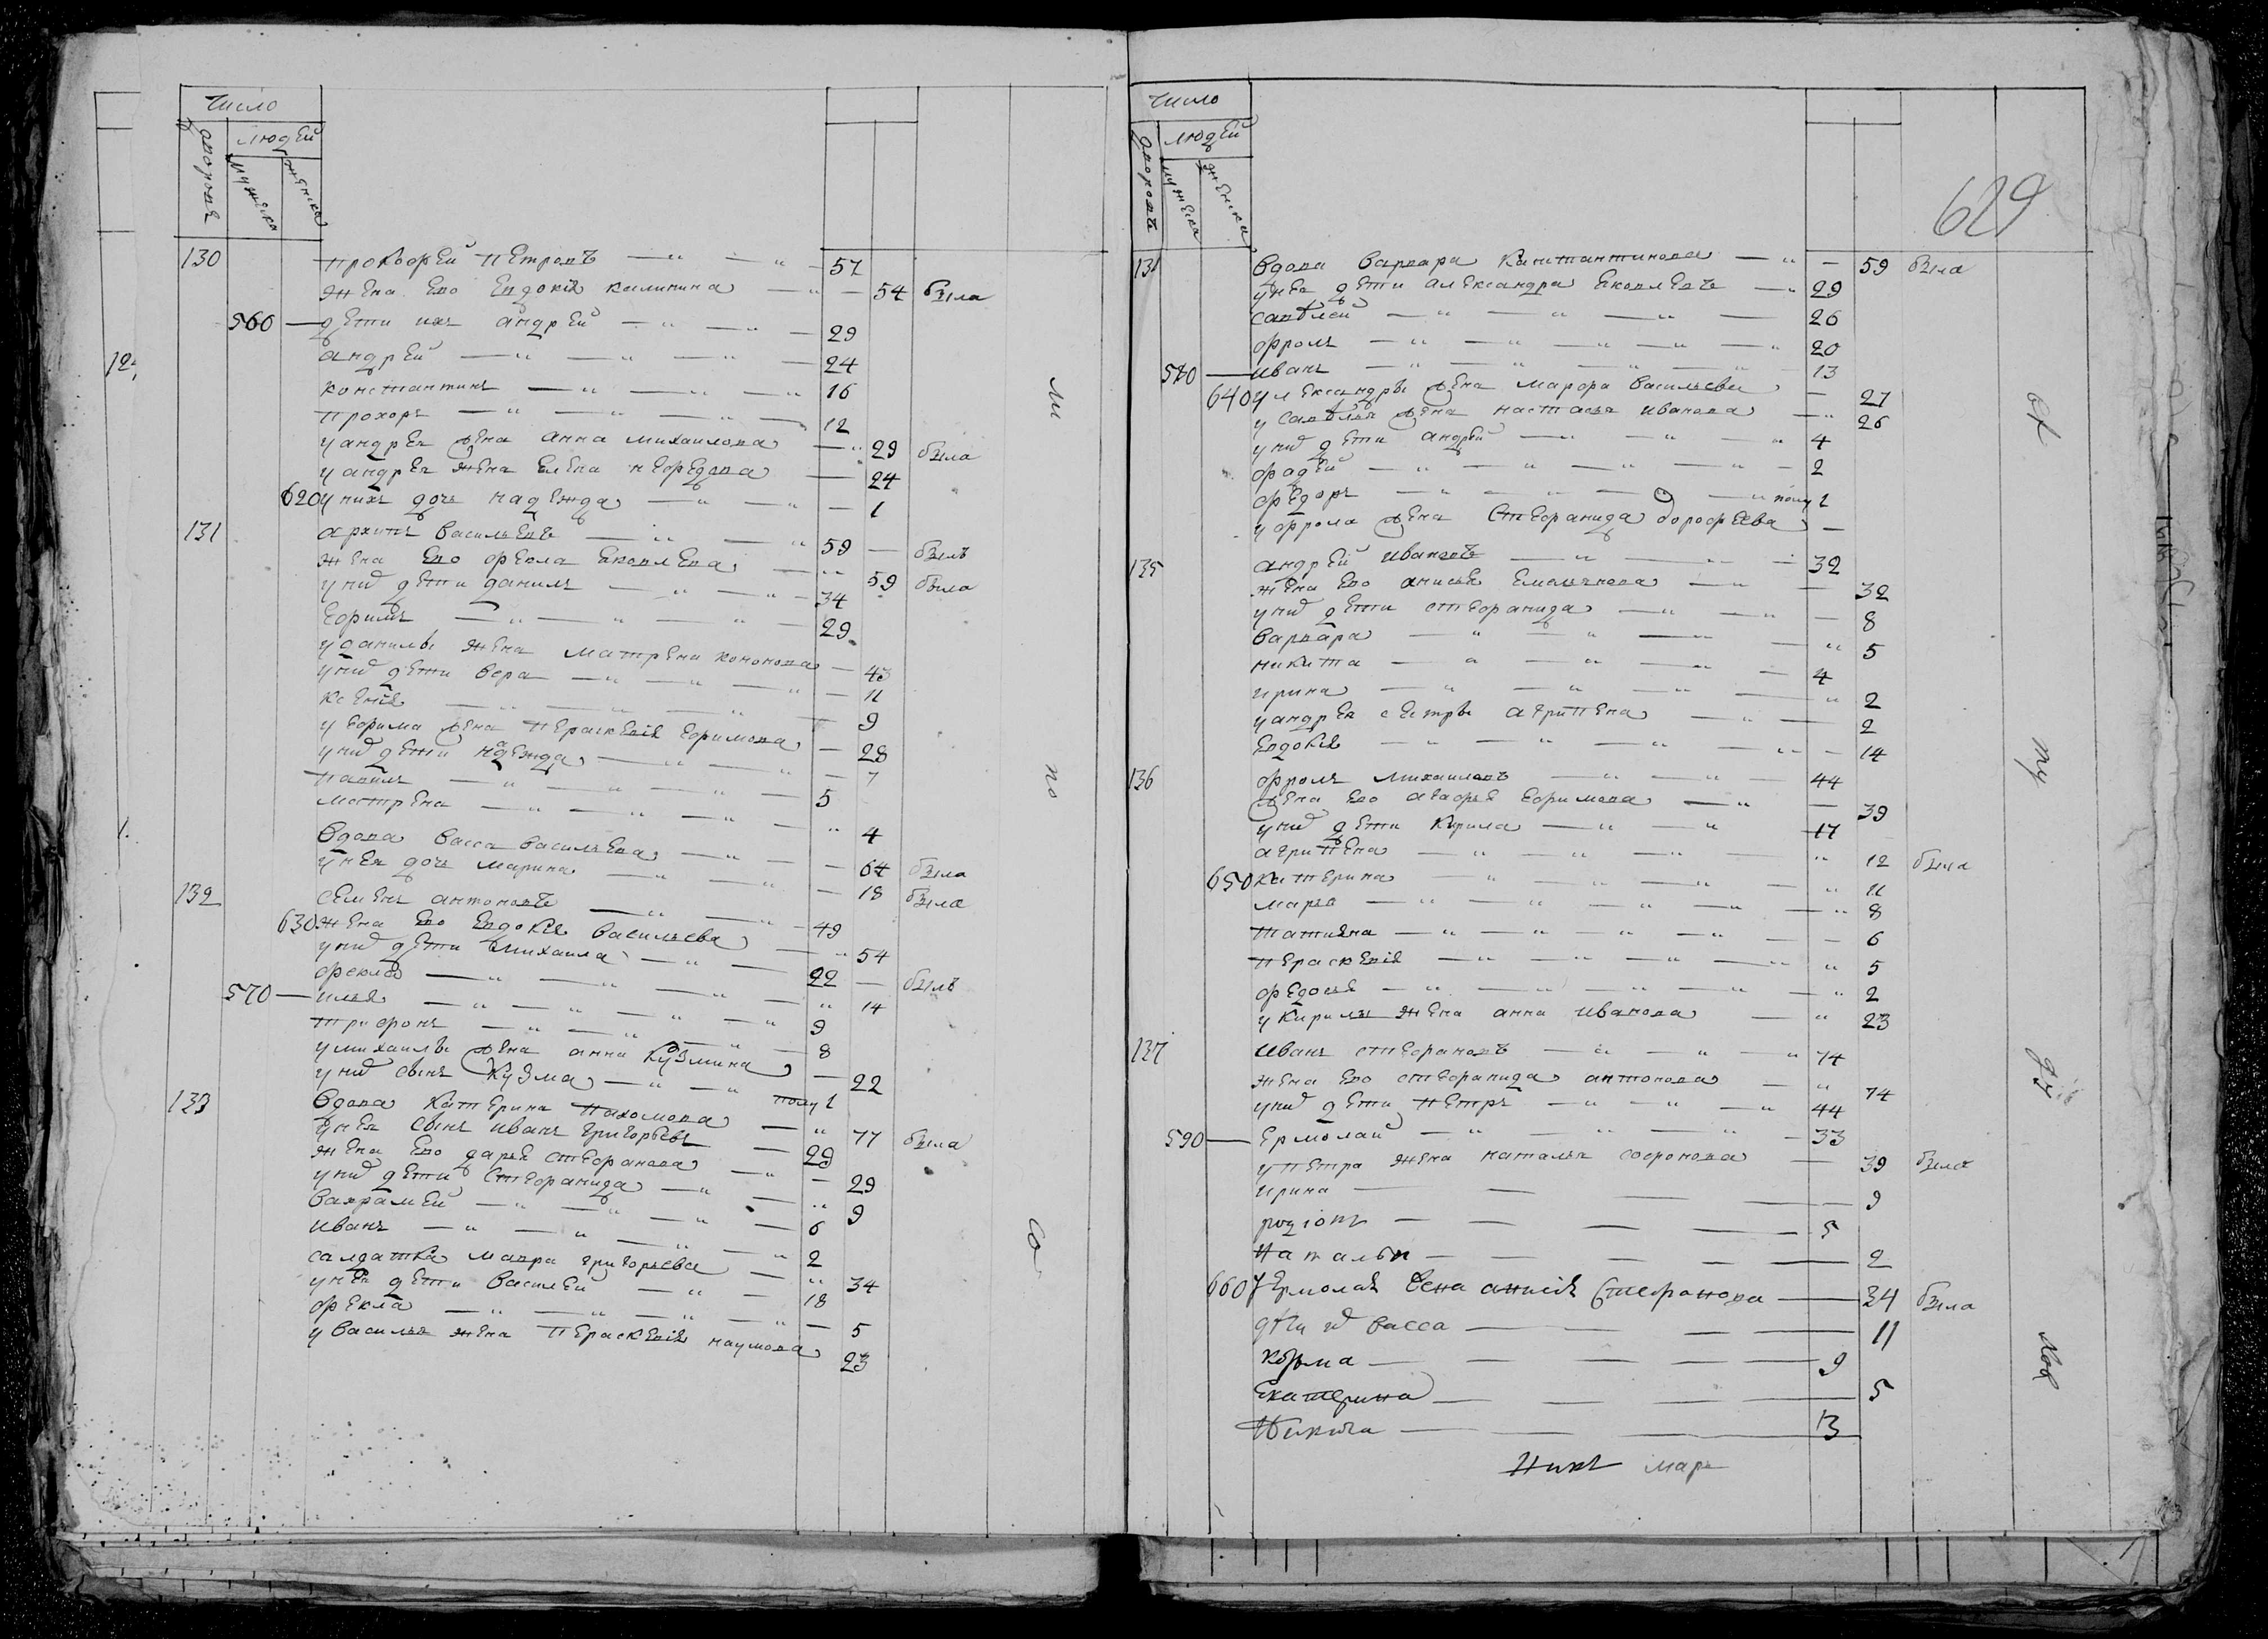 Число
дворовъ
людей
мужеска
женска
130 Прокофей Петровъ 57
жена ево Евдокія Калинина 54 была
560 дети ихъ Андрей 29
Андрей 24
Константинъ 16
Прохоръ 12
у Андрея жена Анна Михаилова 29 была
у Андрея жена Елена Нефедова 24
620 у нихъ дочь Надежда 1
131 Архипъ Васильевъ 59 былъ
жена ево Фекла Яковлева 59 была
у них дети Данилъ 34
Ефимъ 29
у Данилы жена Матрена Кононова 43
у них дети Вера 11
Ксенія 9
у Ефима жена Пераскевія Ефимова 28
у них дети Надежда 7
Павилъ 5
Матрена 4
Вдова Васса Васильева 64 была
у нея дочь Марина 18 была
132 Семенъ Антоновъ 49
630 жена ево Евдокія Васильева 54
у них дети Михаила 22 былъ
Фекла 14
570 Илья 9
Трифонъ 8
у Михаилы жена Анна Кузмина 22
у них сынъ Кузма полу 1
133 Вдова Катерина Пахомова 77 была
у нея сынъ Иванъ Григорьевъ 29
жена ево Дарья Стефанова 29
у них дети Стефанида 9
Вахрамей 6
Иванъ 2
салдатка Мавра Григорьева 34
у нея дети Василей 18
Фекла 5
у Василья жена Пераскевія Наумова 23
ли
по
со
Число
дворовъ
людей
мужеска
женска
629
134 Вдова Варвара Канстантинова 59 была
у нея дети Александра Яковлевъ 29
Савелей 26
Фролъ 20
580 Иванъ 13
640 у Александры жена Марфа Васильева 27
у Савелья жена Настасья Иванова 26
у них дети Андрей 4
Фадей 2
Федоръ полу 1
у Фрола жена Стефанида Дорофеева
135 Андрей Ивановъ 32
жена ево Анисья Емельянова 32
у них дети Стефанида 8
Варвара 5
Никита 4
Ирина 2
у Андрея сестры Агрипена 2
Евдокия 14
136 Фролъ Михаиловъ 44
жена ево Агафья Ефимова 39
у них дети Кирила 17
Агрипена 12 была
650 Катерина 11
Марья 8
Татияна 6
Пераскевія 5
Федосья 2
у Кирилы жена Анна Иванова 23
137 Иванъ Стефановъ 74
жена ево Стефанида Антонова 74
у них дети Петръ 44
590 Ермолай 33
у Петра жена Наталья Софронова 39 была
Ирина 9
Родіонъ 5
Наталья 2
660 У Ермолая жена Анисія Стефанова 34 была
Васса 11
Козьма 9
Екатерина 5
Никита 3
мар
ту